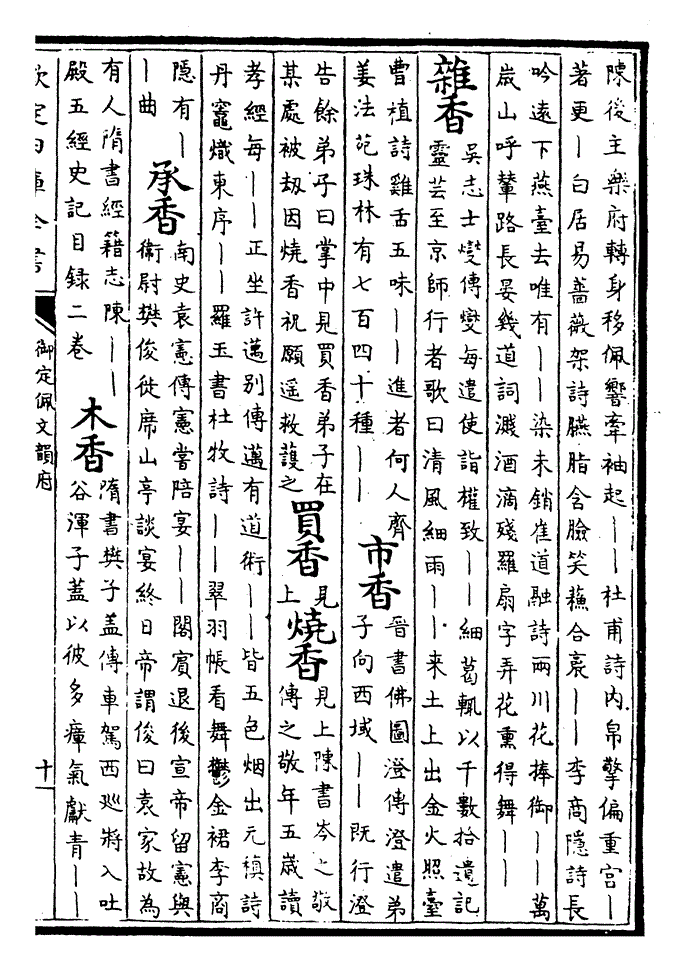 陳後主樂府轉身移佩響牽袖起——杜甫詩内帛擎偏重宫—
著更—白居易薔薇架詩臙脂含臉笑蘇合裛——李商隱詩長
吟遠下燕臺去唯有——染未銷崔道融詩兩川花捧御——萬
嵗山呼輦路長晏幾道詞濺酒滴殘羅扇字弄花熏得舞——
雜香
吳志士燮傳燮每遣使詣權致——細葛輒以千數拾遺記
靈芸至京師行者歌曰清風細雨——来土上出金火照臺
曹植詩雞舌五味——進者何人齊
姜法苑珠林有七百四十種——
市香
晉書佛圖澄傳澄遣弟
子向西域——既行澄
告餘弟子曰掌中見買香弟子在
某處被刼因燒香祝願遥救護之
買香
見
上
燒香
見上陳書岑之敬
傳之敬年五嵗讀
孝經每——正坐許邁别傳邁有道術——皆五色烟出元稹詩
丹竈熾東序——羅玉書杜牧詩——翠羽帳看舞鬱金裙李商
隱有—
—曲
承香
南史袁憲傳憲嘗陪宴——閣賓退後宣帝留憲與
衛尉樊俊徙席山亭談宴終日帝謂俊曰袁家故為
有人隋書經籍志陳——
殿五經史記目録二卷
木香
隋書樊子蓋傳車駕西廵將入吐
谷渾子蓋以彼多瘴氣獻青——
欽定四庫全書
御定佩文韻府
十